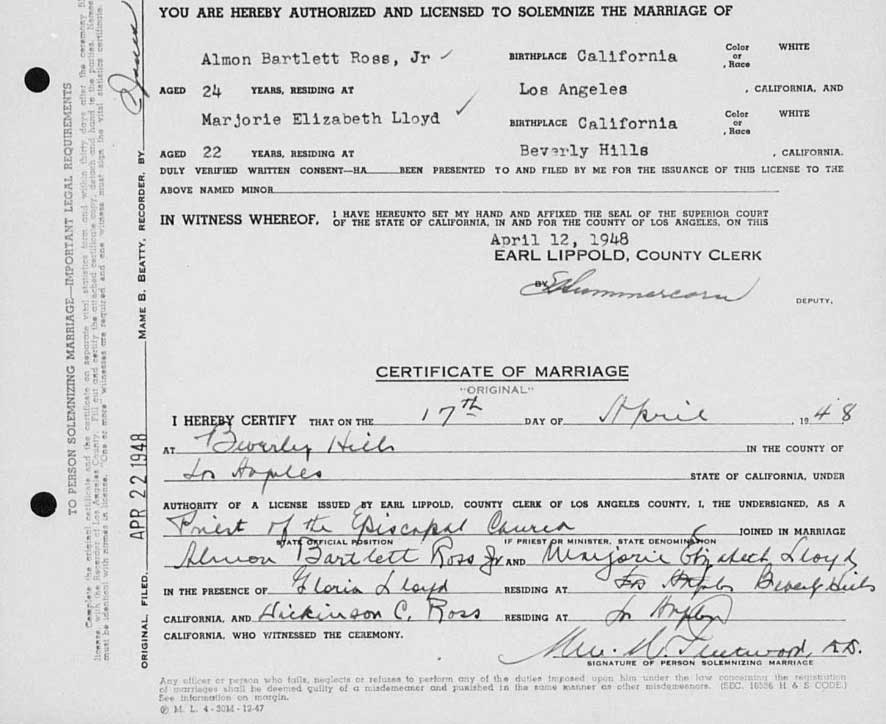 YOU ARE HEREBY AUTHORIZED AND LICENSED TO SOLEMNIZE THE MARRIAGE OF
Almon Bartlett Ross, Jr BIRTHPLACE California Color or Race WHITE
AGED 24 YEARS, RESIDING AT Los Angeles , CALIFORNIA, AND
Marjorie Elizabeth Lloyd BIRTHPLACE California Color or Race WHITE
AGED 22 YEARS, RESIDING AT Beverly Hills , CALIFORNIA.
DULY VERIFIED WRITTEN CONSENT—HA BEEN PRESENTED TO AND FILED BY ME FOR THE ISSUANCE OF THIS LICENSE TO THE
ABOVE NAMED MINOR
IN WITNESS WHEREOF, I HAVE HEREUNTO SET MY HAND AND AFFIXED THE SEAL OF THE SUPERIOR COURT
OF THE STATE OF CALIFORNIA, IN AND FOR THE COUNTY OF LOS ANGELES, ON THIS
April 12, 1948
EARL LIPPOLD, COUNTY CLERK
BY
DEPUTY.
CERTIFICATE OF MARRIAGE
"ORIGINAL"
I HEREBY CERTIFY THAT ON THE 17th DAY OF April , 1948
AT Beverly Hills IN THE COUNTY OF
Los Angeles STATE OF CALIFORNIA, UNDER
AUTHORITY OF A LICENSE ISSUED BY EARL LIPPOLD, COUNTY CLERK OF LOS ANGELES COUNTY, I, THE UNDERSIGNED, AS A
Priest of the Episcopal Church JOINED IN MARRIAGE
STATE OFFICIAL POSITION IF PRIEST OR MINISTER, STATE DENOMINATION
Almon Bartlett Ross Jr AND Marjorie Elizabeth Lloyd
IN THE PRESENCE OF Gloria Lloyd RESIDING AT Los Angeles Beverly Hills
CALIFORNIA, AND Dickinson C. Ross RESIDING AT Los Angeles
CALIFORNIA, WHO WITNESSED THE CEREMONY.
SIGNATURE OF PERSON SOLEMNIZING MARRIAGE
Any officer or person who fails, neglects or refuses to perform any of the duties imposed upon him under the law concerning the registration
of marriages shall be deemed guilty of a misdemeanor and punished in the same manner as other misdemeanors. (SEC. 10536 H & S CODE.)
See information on margin.
M. L. 4 - 30M - 12-47
TO PERSON SOLEMNIZING MARRIAGE—IMPORTANT LEGAL REQUIREMENTS
ORIGINAL, FILED, APR 22 1948 MAME B. BEATTY, RECORDER, BY